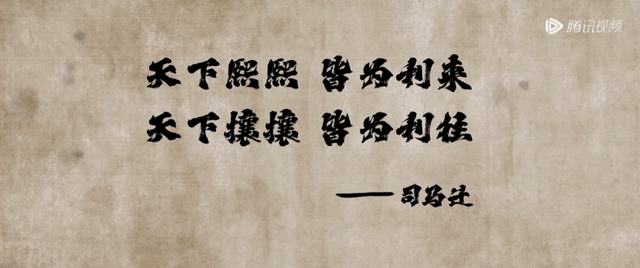 腾讯视频
天下熙熙 皆为利来
天下攘攘 皆为利往
——司马迁